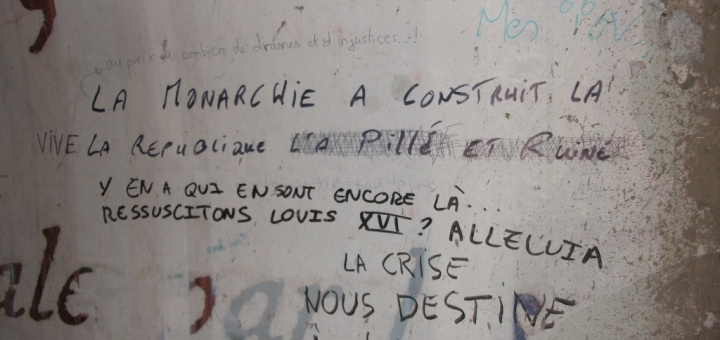 Mes
au prix de combien de drames et d'injustices...!
LA MONARCHIE A CONSTRUIT LA
VIVE LA REPUBLIQUE L'A Pillé ET RUINÉ
Y EN A QUI EN SONT ENCORE LÀ...
RESSUSCITONS LOUIS XVI ? ALLELUIA
LA CRISE
NOUS DESTINE
ale